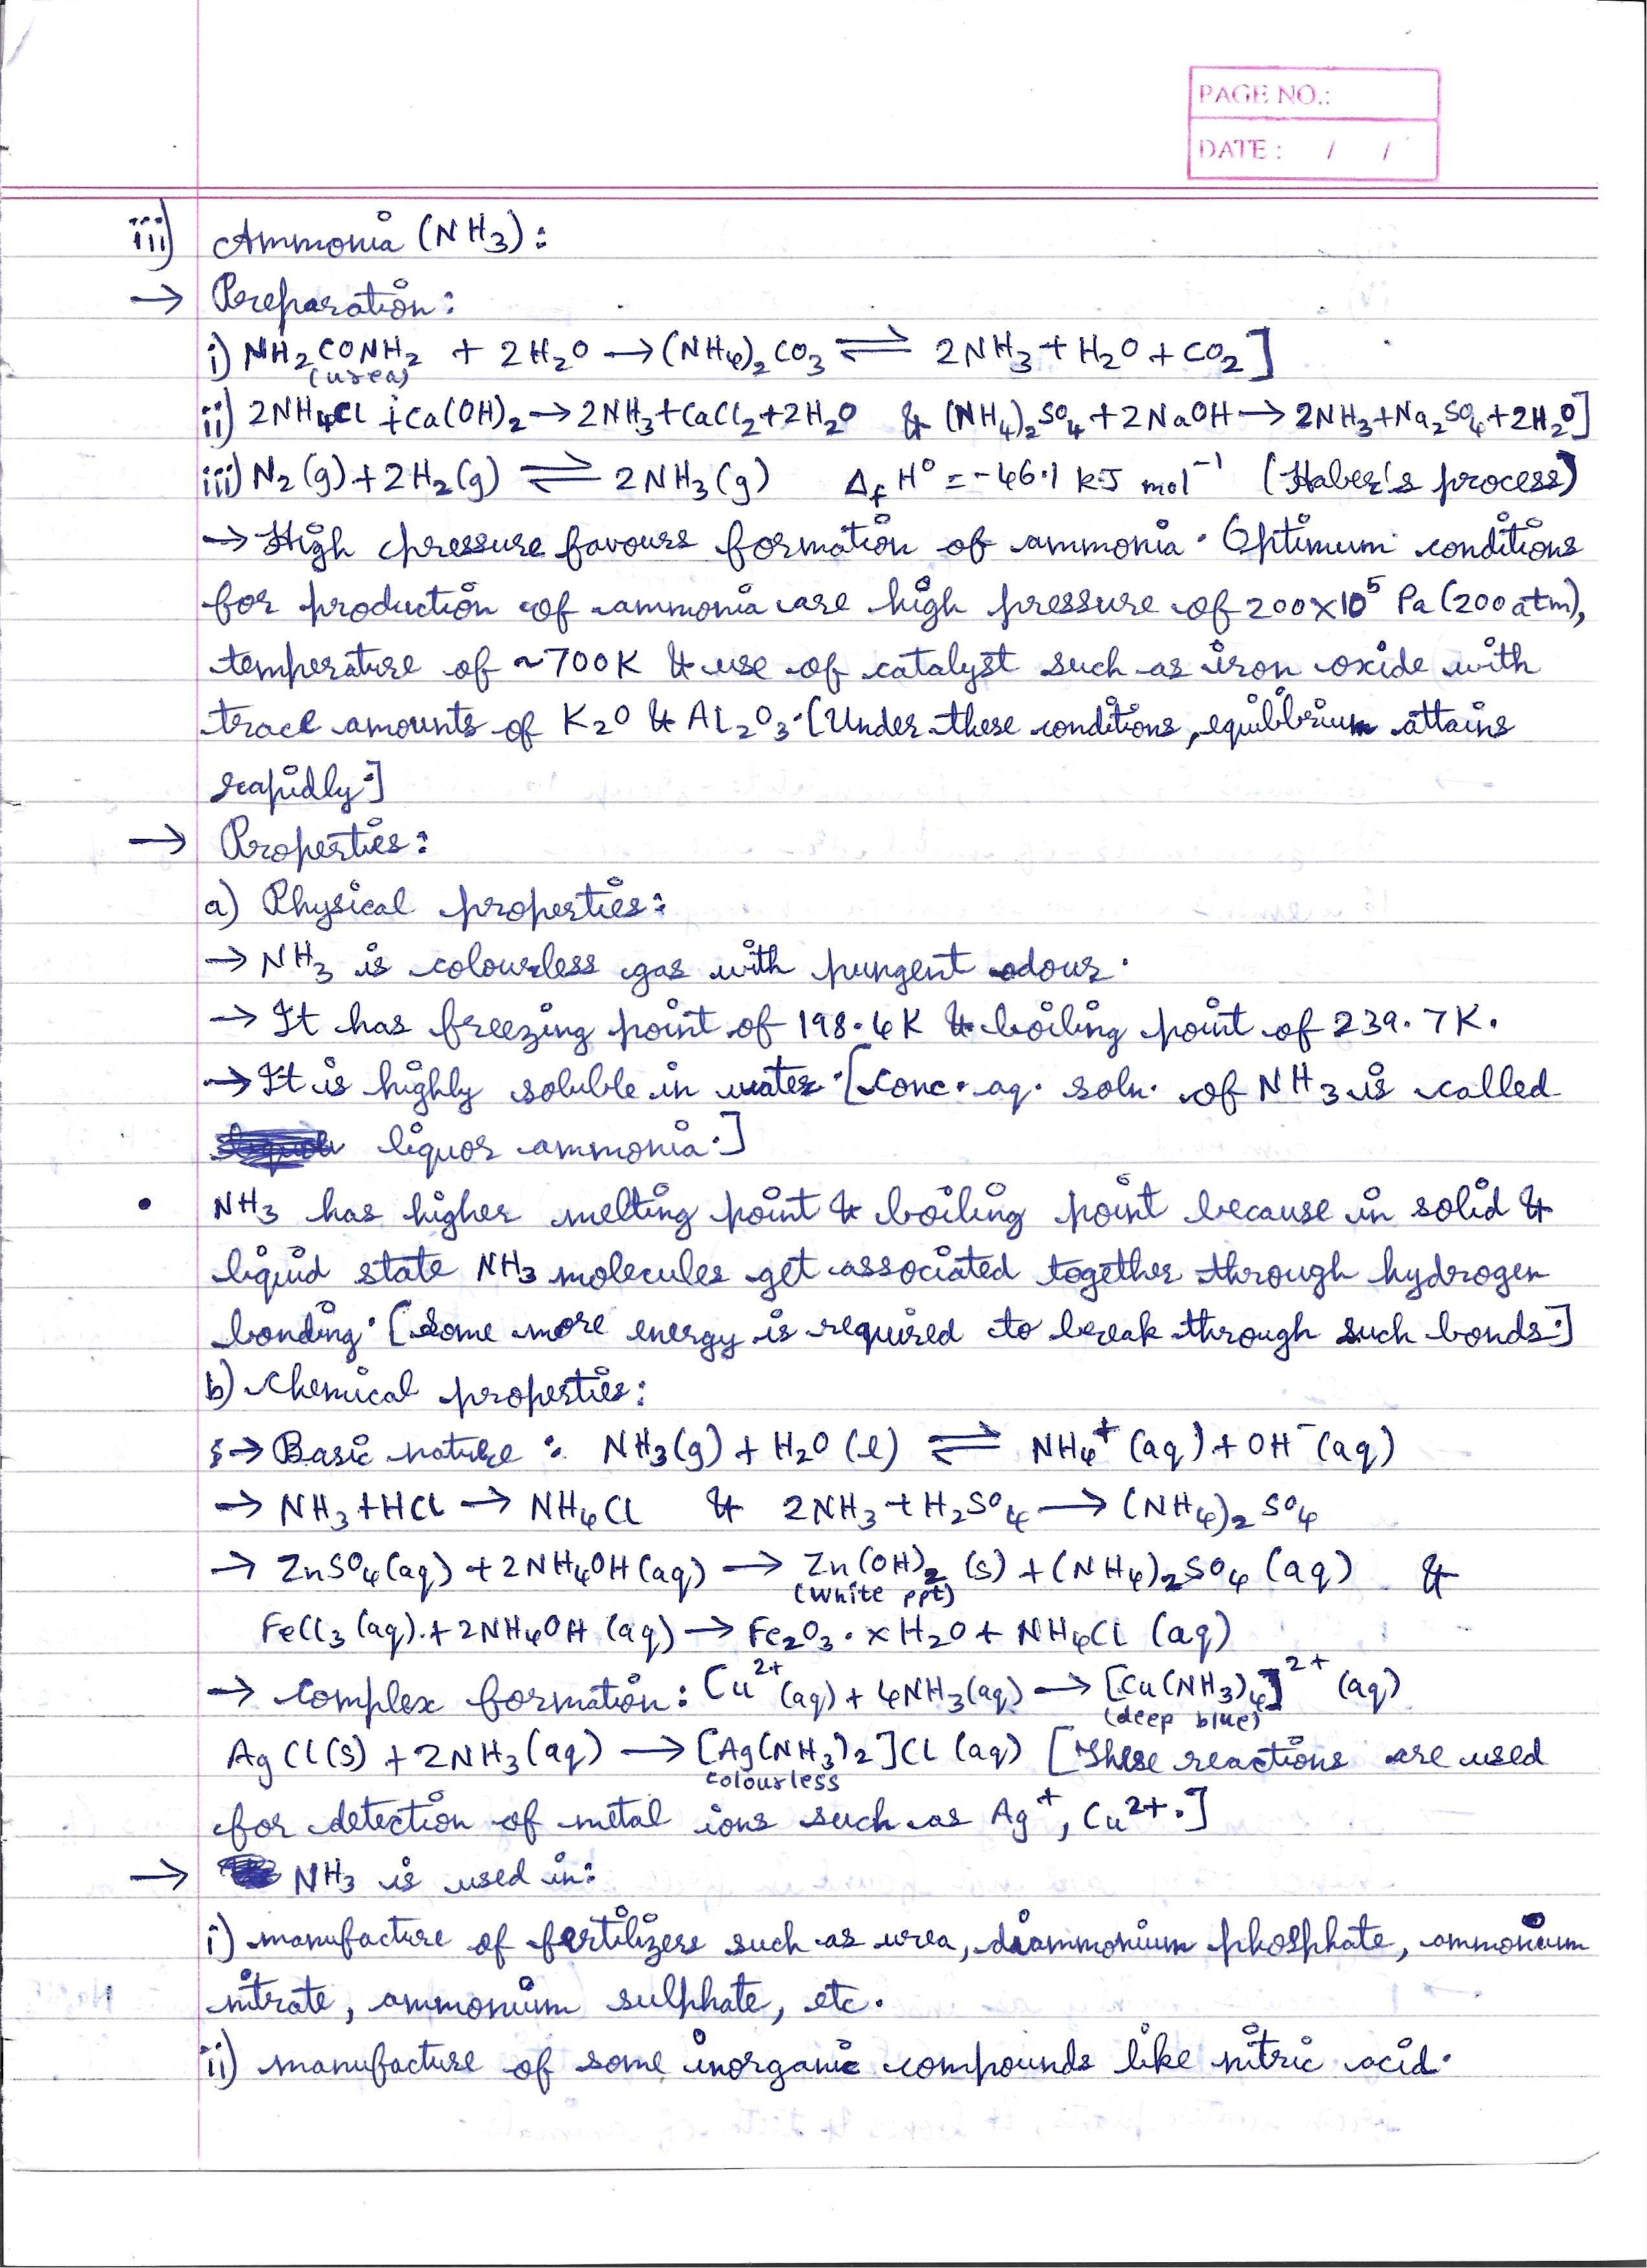 PAGE NO.:
DATE : / /
iii) Ammonia (NH3):
→ Preparation:
i) NH2CONH2 + 2H2O → (NH4)2CO3 ⇌ 2NH3 + H2O + CO2]
(urea)
ii) 2NH4Cl + Ca(OH)2 → 2NH3 + CaCl2 + 2H2O & (NH4)2SO4 + 2NaOH → 2NH3 + Na2SO4 + 2H2O]
iii) N2(g) + 2H2(g) ⇌ 2NH3(g) ΔfH° = -46.1 kJ mol⁻¹ (Haber's process)
→ High pressure favours formation of ammonia. Optimum conditions
for production of ammonia are high pressure of 200×10⁵ Pa (200 atm),
temperature of ~700K & use of catalyst such as iron oxide with
trace amounts of K2O & Al2O3. [Under these conditions, equilibrium attains
rapidly.]
→ Properties:
a) Physical properties:
→ NH3 is colourless gas with pungent odour.
→ It has freezing point of 198.4K & boiling point of 239.7K.
→ It is highly soluble in water. [Conc. aq. soln. of NH3 is called
liquor ammonia.]
• NH3 has higher melting point & boiling point because in solid &
liquid state NH3 molecules get associated together through hydrogen
bonding. [Some more energy is required to break through such bonds.]
b) Chemical properties:
→ Basic nature : NH3(g) + H2O (l) ⇌ NH4⁺ (aq) + OH⁻ (aq)
→ NH3 + HCl → NH4Cl & 2NH3 + H2SO4 → (NH4)2SO4
→ ZnSO4(aq) + 2NH4OH(aq) → Zn(OH)2 (s) + (NH4)2SO4 (aq) &
(White ppt)
FeCl3 (aq) + 2NH4OH (aq) → Fe2O3.xH2O + NH4Cl (aq)
→ Complex formation: Cu²⁺(aq) + 4NH3(aq) → [Cu(NH3)4]²⁺ (aq)
(deep blue)
AgCl(s) + 2NH3(aq) → [Ag(NH3)2]Cl (aq) [These reactions are used
colourless
for detection of metal ions such as Ag⁺, Cu²⁺.]
→ NH3 is used in:
i) manufacture of fertilizers such as urea, diammonium phosphate, ammonium
nitrate, ammonium sulphate, etc.
ii) manufacture of some inorganic compounds like nitric acid.